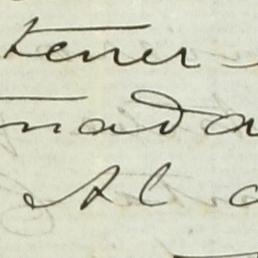 tener
nada
Al